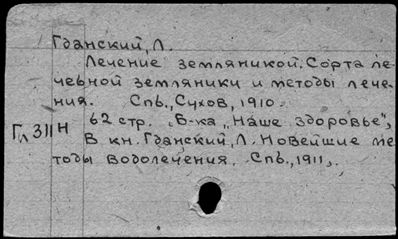 Гданский, Л.
Лечение земляникой. Сорта ле-
чебной земляники и методы лече-
ния. Спб., Сухов, 1910.
62 стр. Б-ка „Наше здоровье",
Гл 311н
В кн. Гданский, Л. Новейшие ме-
тоды водолечения. Спб., 1911.